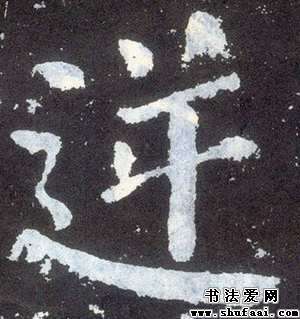 逆
书法爱网
www.shufaai.com